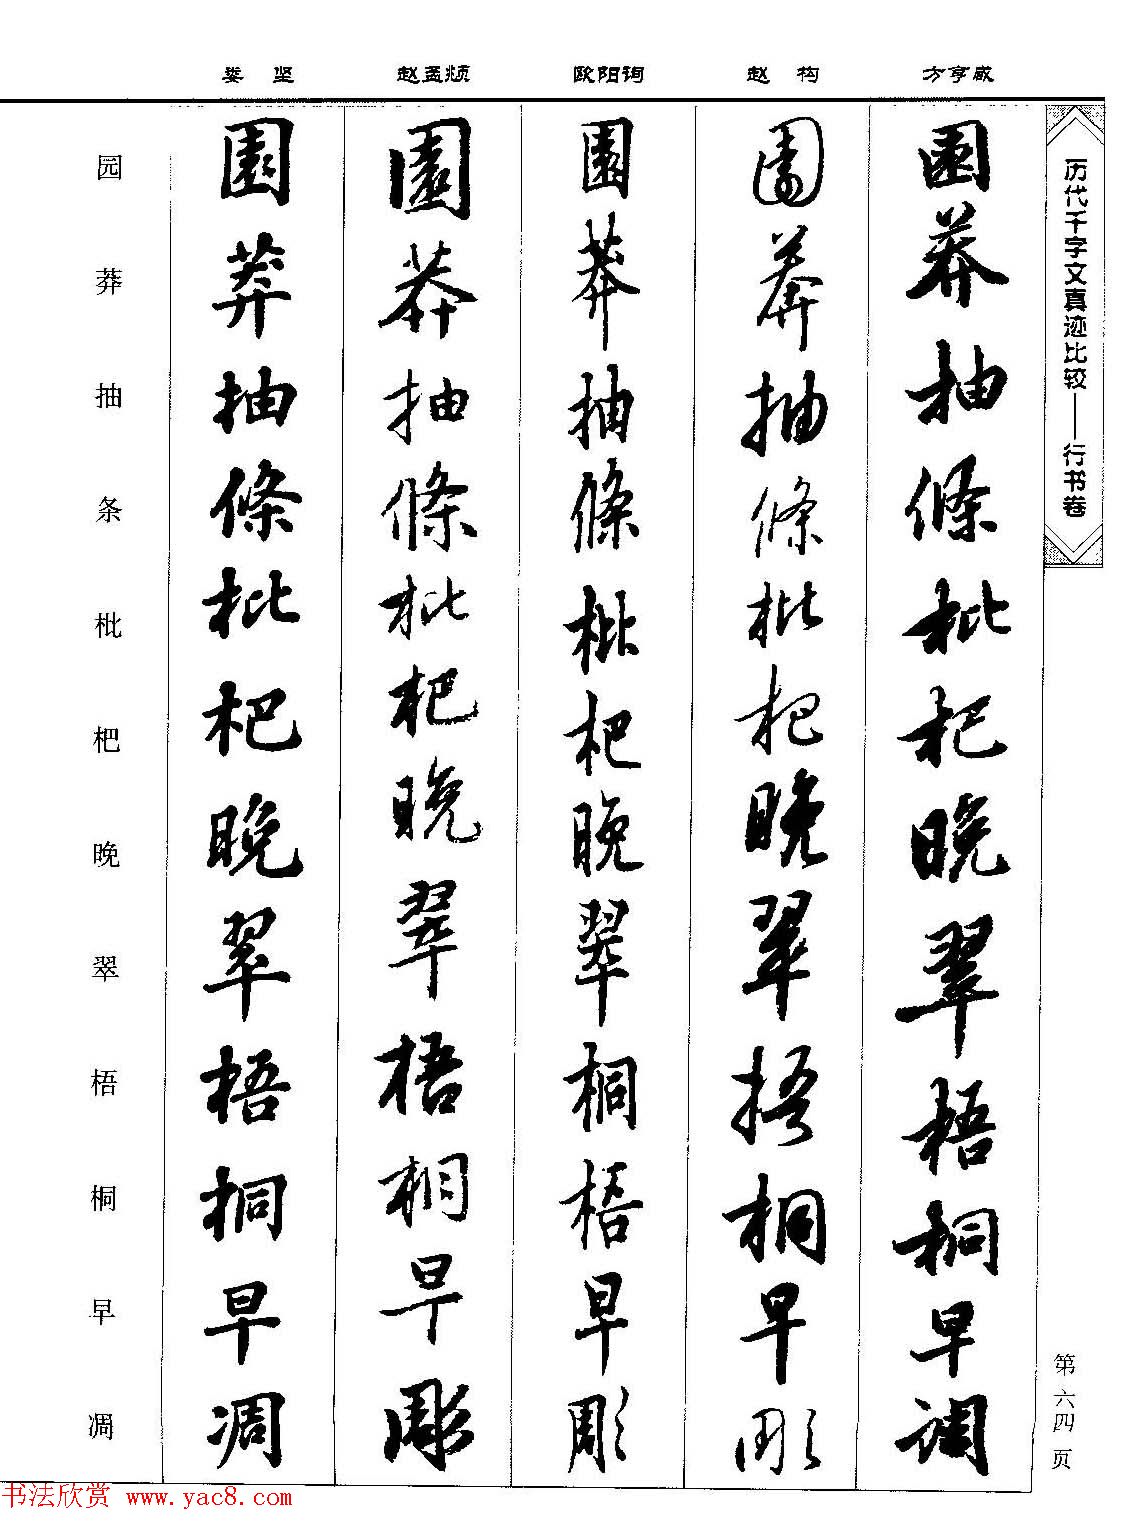 历代千字文真迹比较——行书卷
第六四页
方亨咸
園莽抽條枇杷晚翠梧桐早調
赵构
園莽抽條枇杷晚翠梧桐早彫
欧阳询
園莽抽條枇杷晚翠桐梧早彫
赵孟頫
園莽抽條枇杷晚翠梧桐早彫
娄坚
園莽抽條枇杷晚翠梧桐早凋
园莽抽条枇杷晚翠梧桐早凋
书法欣赏 www.yac8.com